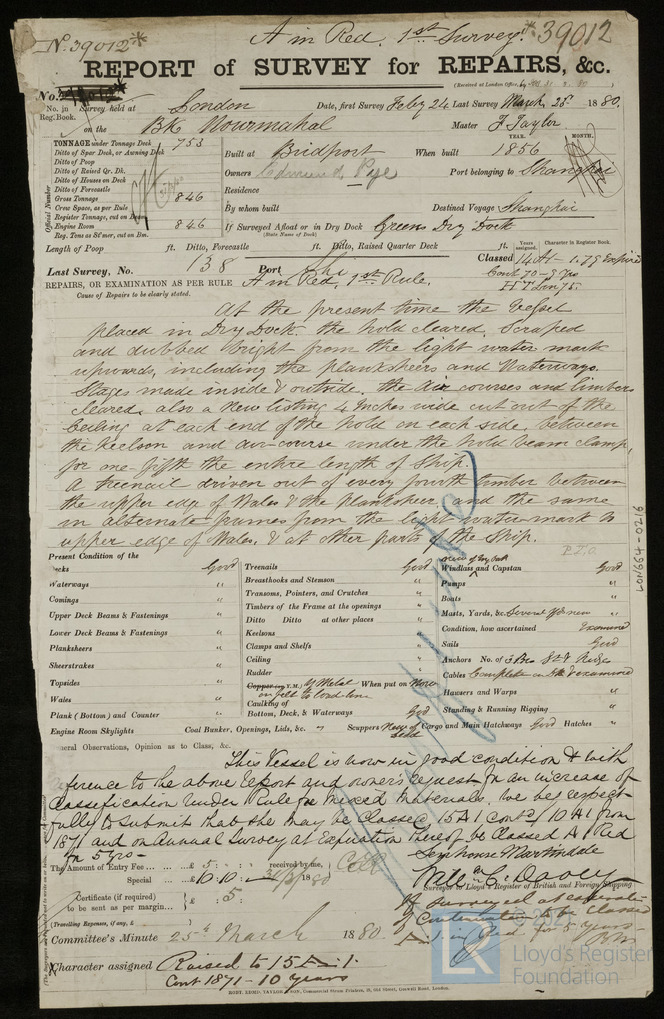 No. 39012*
A in Red. 1st Survey. *39012
REPORT of SURVEY for REPAIRS, &c.
(Received at London Office,
No.
No. in Reg. Book.
Survey held at London Date, first Survey Feby 24 Last Survey March 25 1880.
on the Bk Nourmahal Master F. Taylor
TONNAGE under Tonnage Deck 753
Ditto of Spar Deck, or Awning Deck
Ditto of Poop
Ditto of Raised Qr. Dk.
Ditto of Houses on Deck
Ditto of Forecastle
Gross Tonnage 846
Crew Space, as per Rule
Register Tonnage, cut on
Engine Room 846
Reg. Tons as St'mer, cut on Bm.
Official Number
YEAR. MONTH.
Built at Bridport When built 1856
Owners Edward Pye Port belonging to Shanghai
Residence
By whom built Destined Voyage Shanghai
If Surveyed Afloat or in Dry Dock Greens Dry Dock
(State Name of Dock)
Length of Poop ft. Ditto, Forecastle ft. Ditto, Raised Quarter Deck ft.
Years assigned. Character in Register Book.
Classed 14 A1 - 1.79 Expired
Cont 70 - 9 Yrs
H T Lon 75.
Last Survey, No. 138 Port Shi
REPAIRS, OR EXAMINATION AS PER RULE A in Red, 1st Rule.
Cause of Repairs to be clearly stated.
At the present time the Vessel
placed in Dry Dock. the hold cleared, scraped
and dubbed bright from the light water mark
upwards, including the planksheers and Waterways.
Stages made inside & outside. the Air courses and limbers
cleared, also a New listing 4 Inches wide cut out of the
Ceiling at each end of the hold on each side, between
the Keelson and air-course under the hold beam clamp,
for one-fifth the entire length of Ship.
A treenail driven out of every fourth timber between
the upper edge of Wales & the Planksheer, and the same
in alternate frames from the light water-mark to
upper edge of Wales, & at other parts of the Ship.
P.T.O.
LON664-0216
Present Condition of the
Decks Good
Waterways "
Comings "
Upper Deck Beams & Fastenings "
Lower Deck Beams & Fastenings "
Planksheers "
Sheerstrakes "
Topsides "
Wales "
Plank (Bottom) and Counter "
Engine Room Skylights
Treenails Good
Breasthooks and Stemson "
Transoms, Pointers, and Crutches "
Timbers of the Frame at the openings "
Ditto Ditto at other places "
Keelsons "
Clamps and Shelfs "
Ceiling "
Rudder "
Copper (or Y.M.) Y Metal When put on Now
on felt to load line
Caulking of
Bottom, Deck, & Waterways Good
Coal Bunker, Openings, Lids, &c. Scuppers New of lead
Windlass and Capstan Good
Pumps "
Boats "
Masts, Yards, &c. Several yds new "
Condition, how ascertained Examined
Sails Good
Anchors No. of 3 Bro St & Kedges
Cables Complete examined
Hawsers and Warps "
Standing & Running Rigging "
Cargo and Main Hatchways Good Hatches "
General Observations, Opinion as to Class, &c.
This Vessel is now in good condition & with
reference to the above report and owner's request for an increase of
classification under Rule for mixed materials, we beg respect-
fully to submit that she may be Classed 15 A1 contd 10 A1 from
1871 and on Annual Survey at Expiration thereof be Classed A1 Red
for 5 yrs -
The Amount of Entry Fee ... £ 5 : : received by me,
Special ... £ 10.10. 1880
Certificate (if required) to be sent as per margin... £ : 5 :
(Travelling Expenses, if any, £ )
Senhouse Martindale
Surveyor to Lloyd's Register of British and Foreign Shipping
If surveyed at expiration
of Continuation to be classed
A.1. in Red for 5 years
Committee's Minute 25th March 1880
Character assigned Raised to 15 A.1.
Cont 1871 - 10 years
Lloyd's Register
Foundation